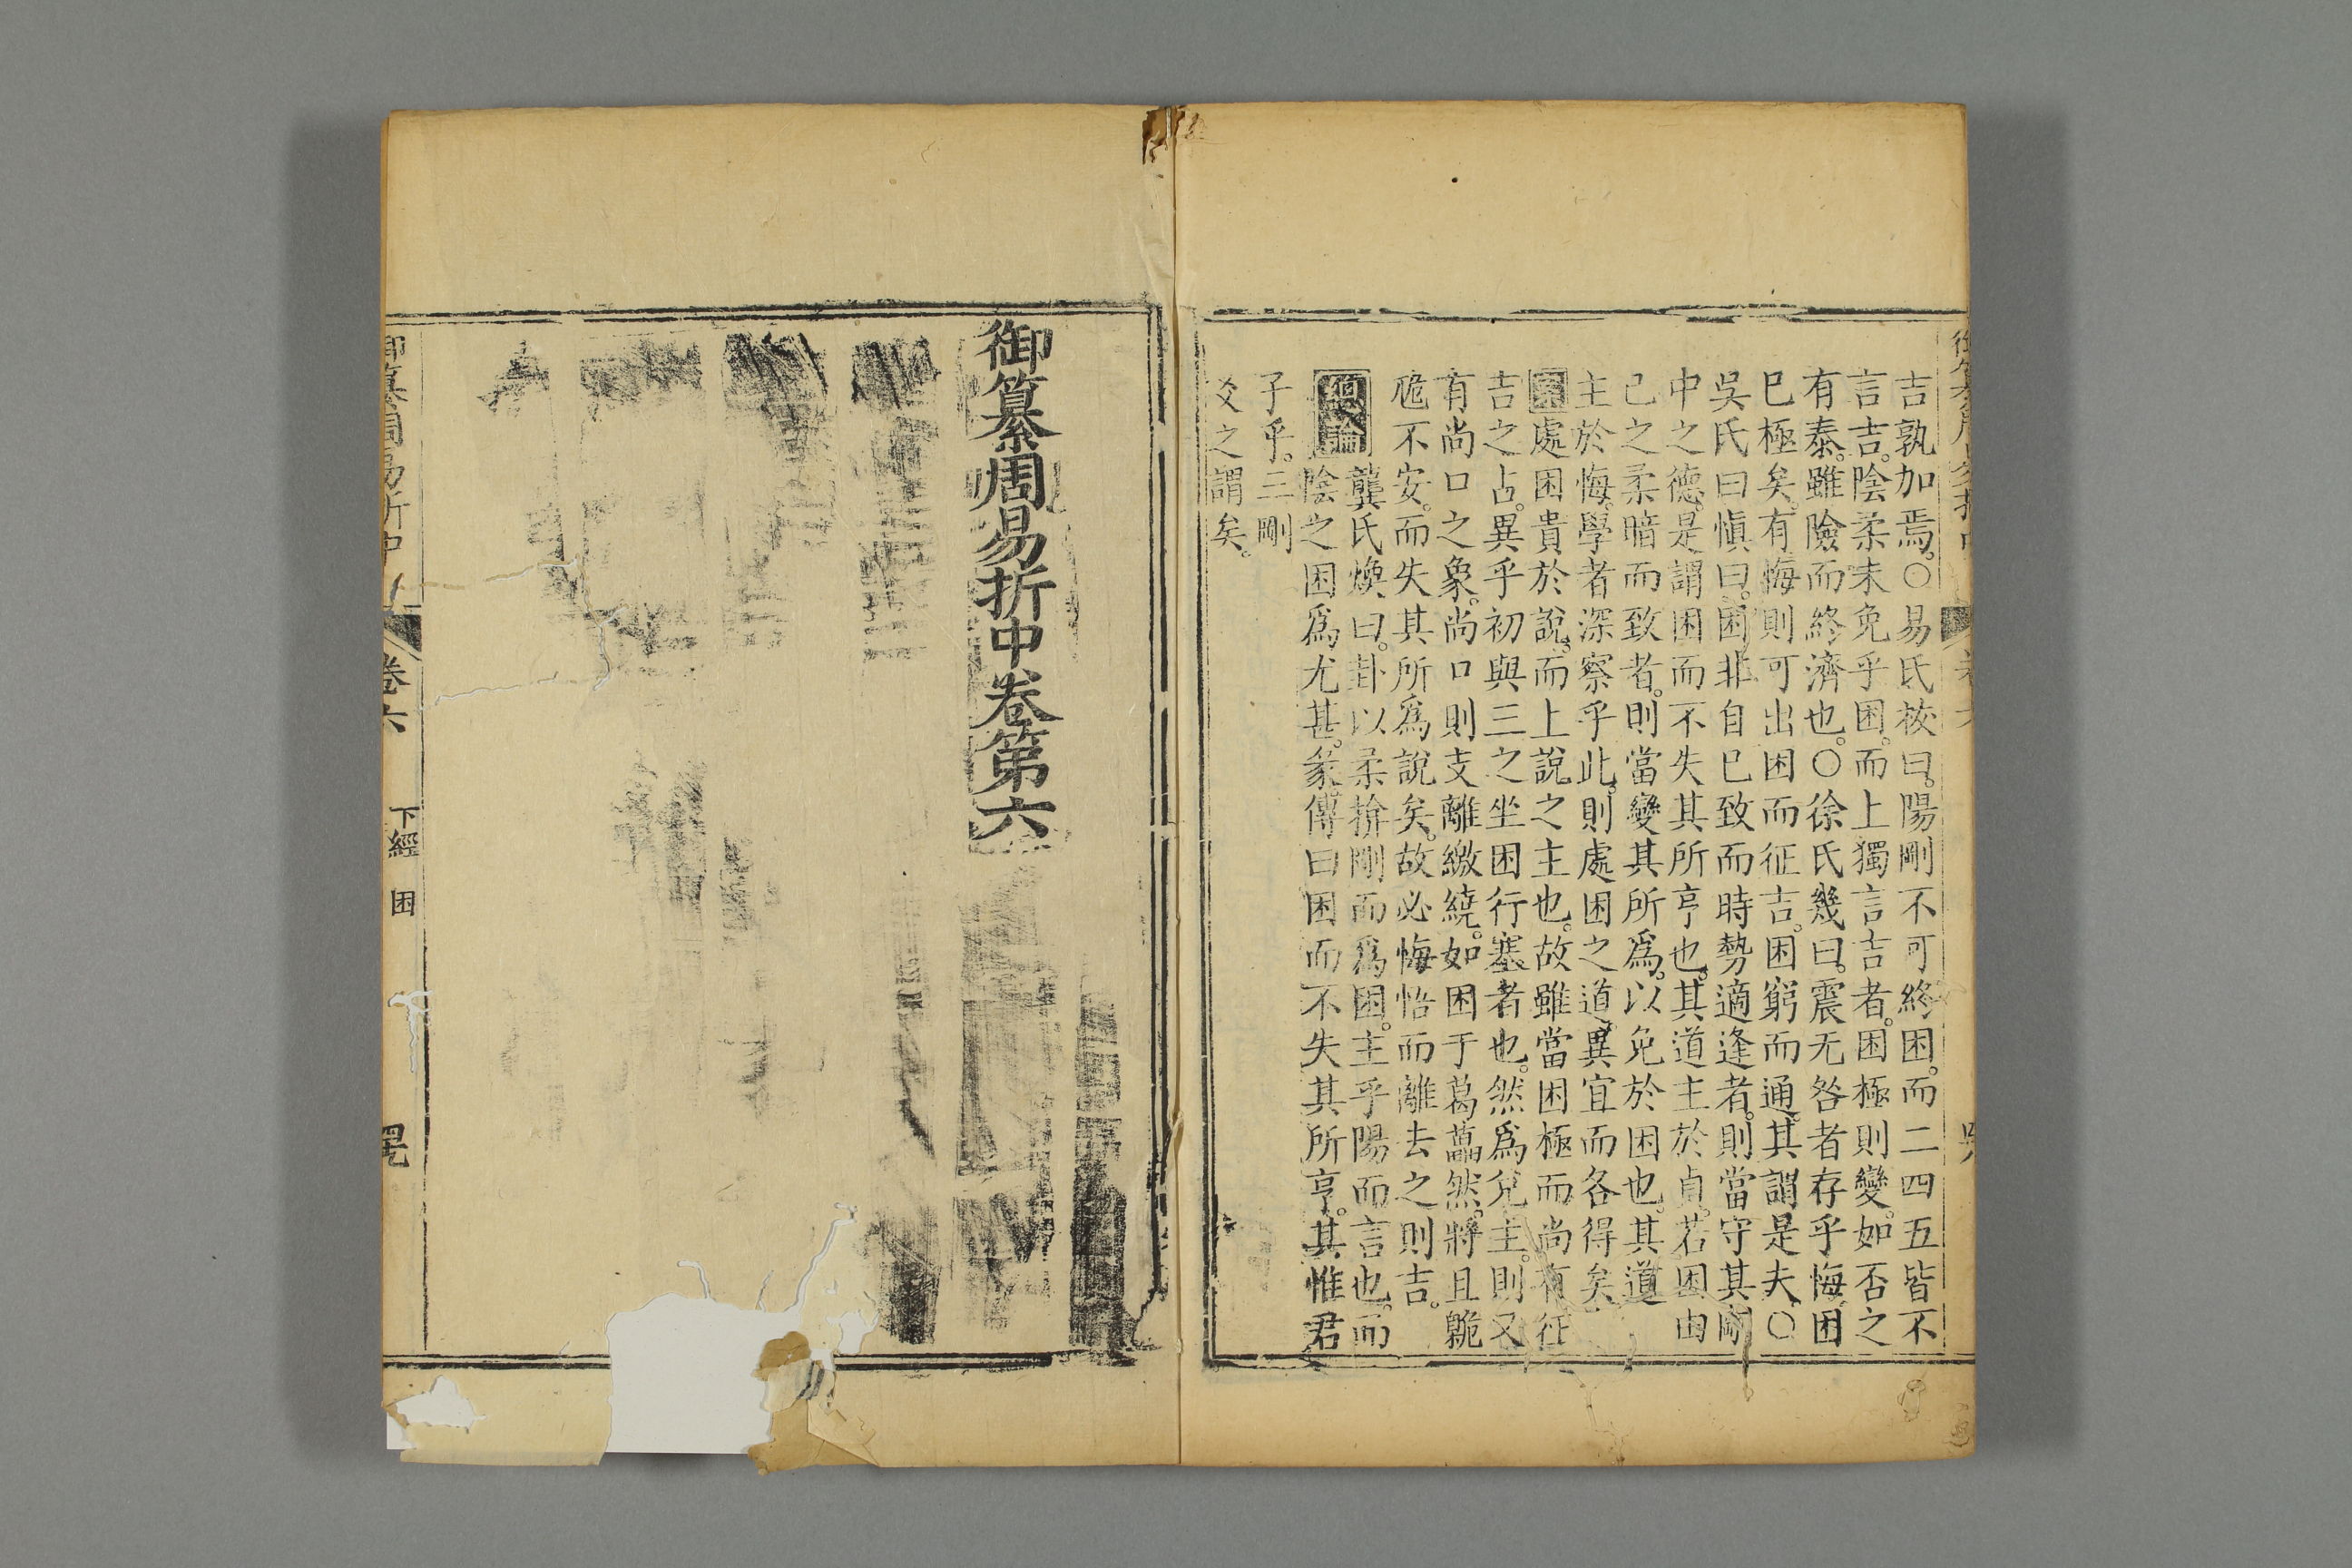 吉孰加焉。〇易氏祓曰。陽剛不可終困。而二四五皆不
言吉。陰柔未免乎困。而上獨言吉者。困極則變。如否之
有泰。雖險而終濟也。〇徐氏幾曰。震无咎者存乎悔。困
巳極矣。有悔則可出困而征吉。困窮而通。其謂是夫。〇
吳氏曰愼曰。困非自巳致而時勢適逢者。則當守其剛
中之德。是謂困而不失其所亨也。其道主於貞。若困由
己之柔暗而致者。則當變其所爲。以免於困也。其道
主於悔。學者深察乎此。則處困之道。異宜而各得矣
案處困貴於說。而上說之主也。故雖當困極而尚有征
吉之占。異乎初與三之坐困行塞者也。然爲兌主。則又
有尚口之象。尚口則支離繳繞。如困于葛藟然。將且臲
卼不安。而失其所爲說矣。故必悔悟而離去之則吉。
總論 龔氏煥曰。卦以柔揜剛而爲困。主乎陽而言也。而
陰之困爲尤甚。彖傳曰困而不失其所亨。其惟君
子乎。三剛
爻之謂矣。
御纂周易折中卷第六
御纂周易折中
卷六
下經 困